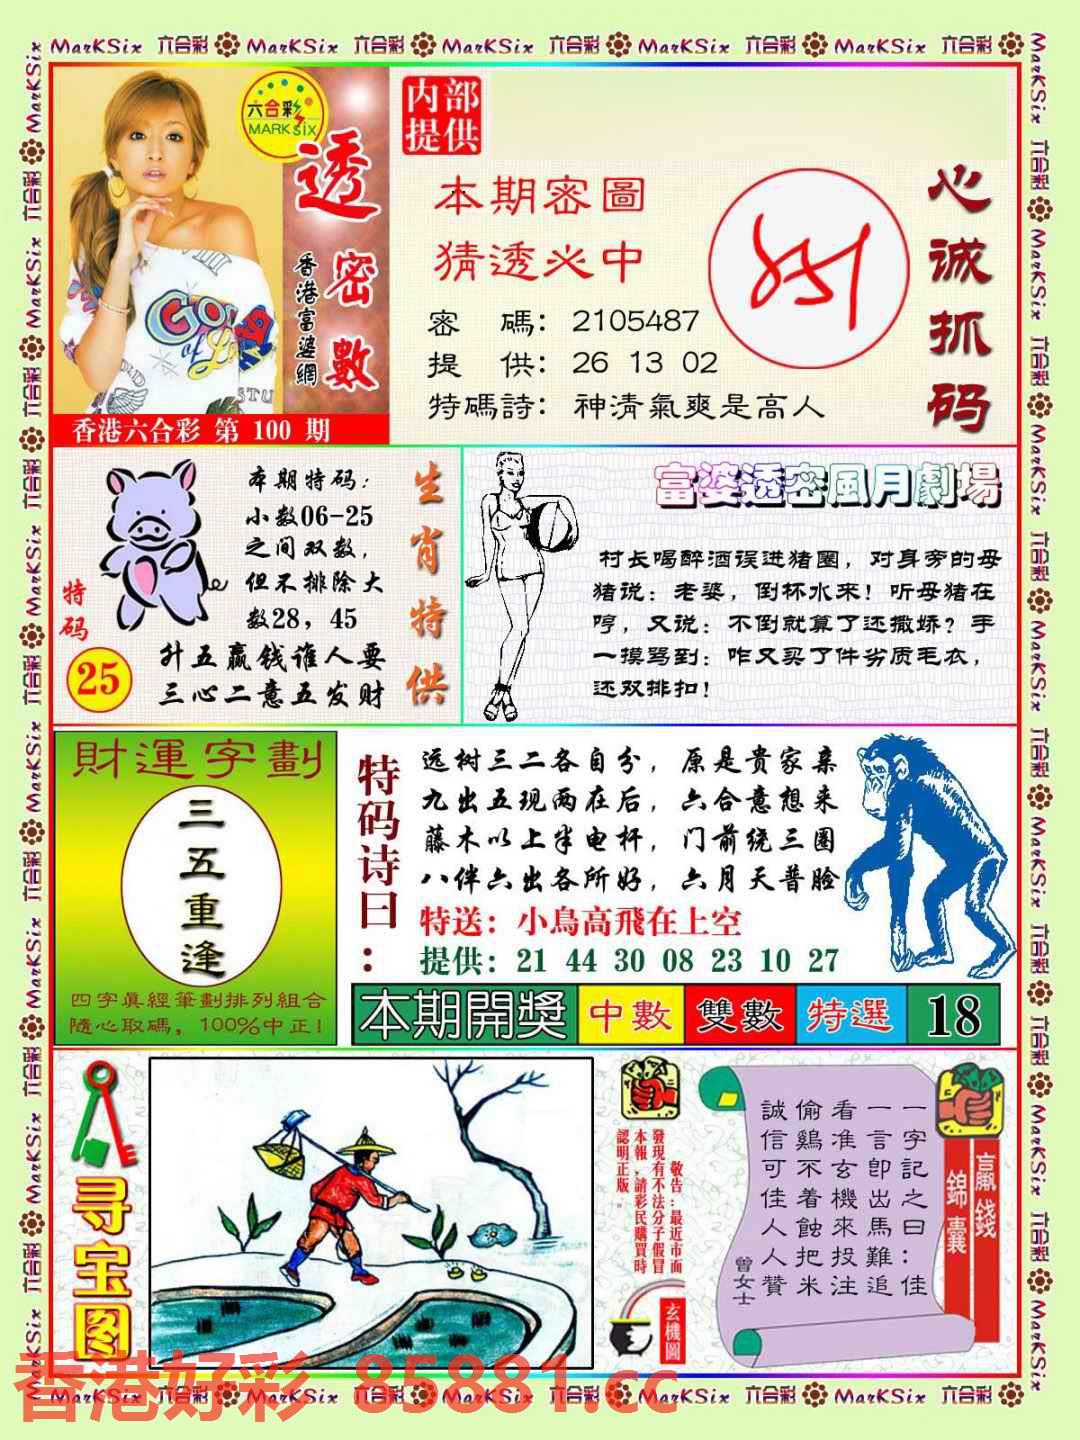 MarKSix 六合彩 MarKSix 六合彩 MarKSix 六合彩 MarKSix 六合彩 MarKSix 六合彩
六合彩
MARK SIX
透密數
香港富婆網
香港六合彩 第 100 期
内部
提供
本期密圖
猜透必中
密 碼: 2105487
提 供: 26 13 02
特碼詩: 神清氣爽是高人
心诚抓码
本期特码:
小数06-25
之间双数,
但不排除大
数28, 45
特码
25
升五赢钱谁人要
三心二意五发财
生肖特供
富婆透密風月劇場
村长喝醉酒误进猪圈, 对身旁的母
猪说: 老婆, 倒杯水来! 听母猪在
哼, 又说: 不倒就算了还撒娇? 手
一摸骂到: 咋又买了件劣质毛衣,
还双排扣!
財運字劃
三五重逢
四字真經筆劃排列組合
隨心取碼, 100%中正!
特码诗曰:
远树三二各自分, 原是贵家亲
九出五现两在后, 六合意想来
藤木以上半电杆, 门前绕三圈
八伴六出各所好, 六月天普脸
特送: 小鳥高飛在上空
提供: 21 44 30 08 23 10 27
本期開獎 中數 雙數 特選 18
寻宝图
敬告:最近市面
發現有不法分子假冒
本報,請彩民購買時
認明正版。
玄機圖
贏錢
錦囊
一字記之曰:佳
一言即出馬難追
看准玄機來投注
偷鷄不着蝕把米
誠信可佳人人贊
曾女士
香港好彩 85881.cc
MarKSix 六合彩 MarKSix 六合彩 MarKSix 六合彩 MarKSix 六合彩 MarKSix 六合彩